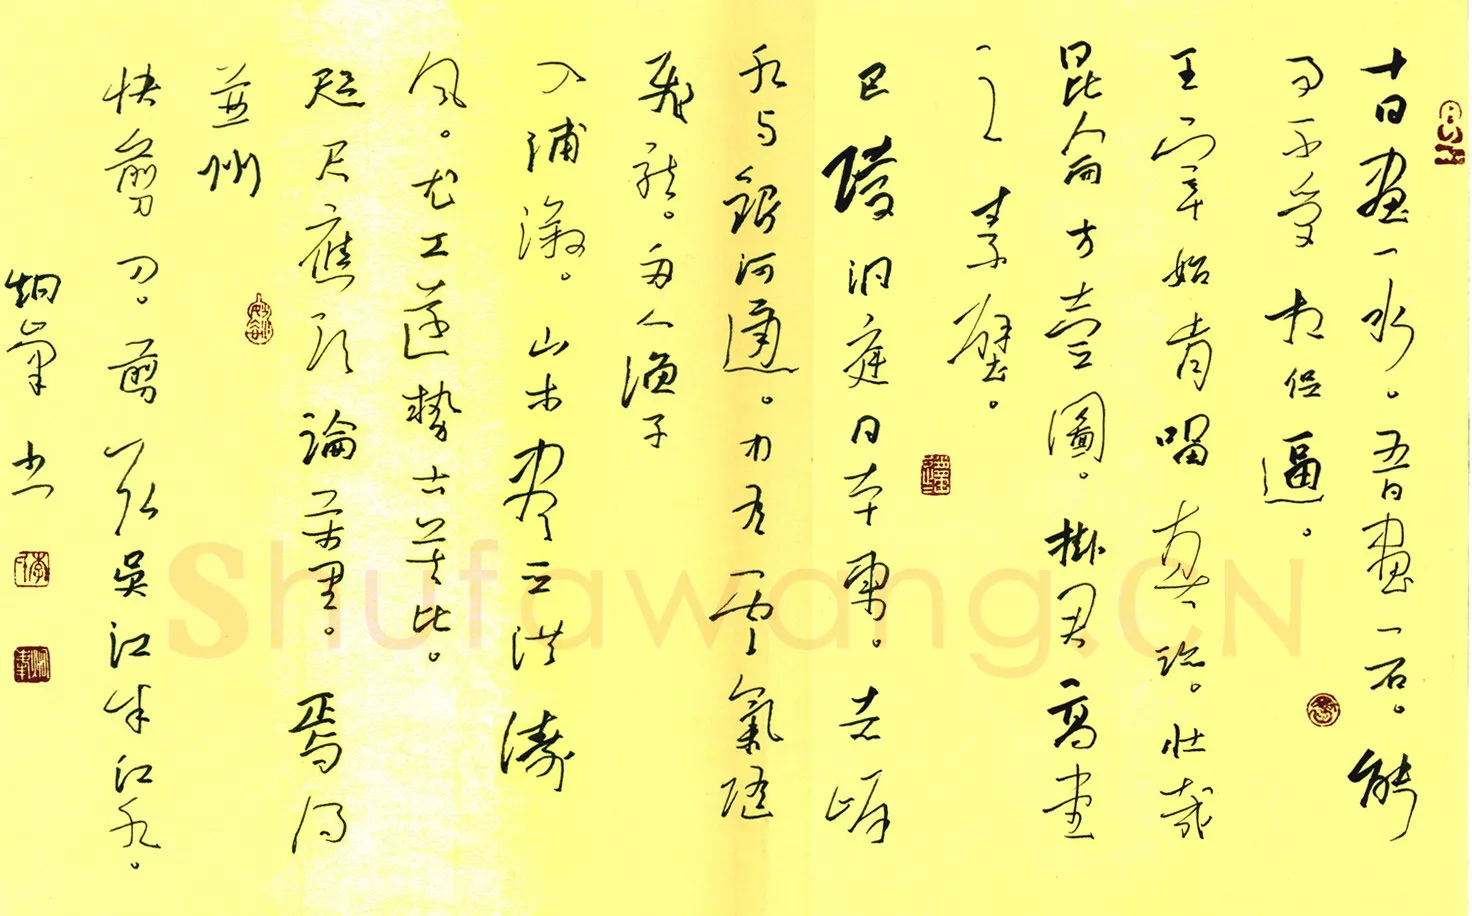 十日畫一水。五日畫一石。能
事不受相促逼。
王宰始肯留真跡。壯哉
昆侖方壺圖。掛君高堂
之素壁。
巴陵洞庭日本東。赤岸
水与銀河通。中有雲氣隨
飛龍。舟人漁子
入浦漵。山木盡亞洪濤
風。尤工遠勢古莫比。
咫尺應須論萬里。焉得
並州
快剪刀。剪取吳江半江水。
书
Shufawang.CN